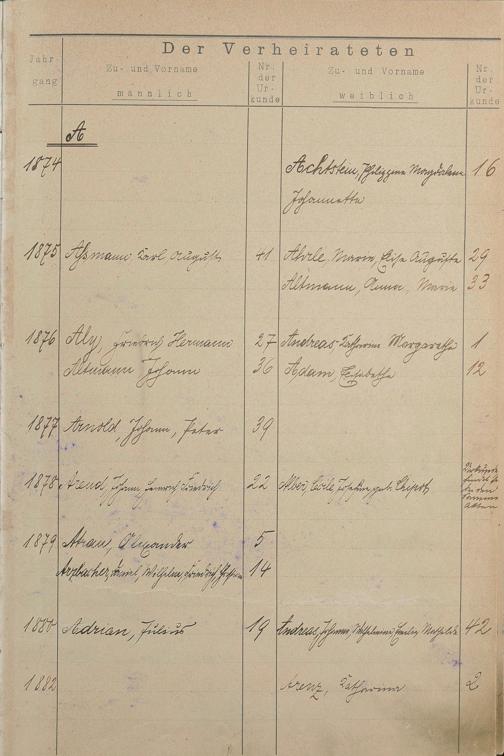 Der Verheirateten
Jahr-
gang
Zu- und Vorname
männlich
Nr.
der
Ur-
kunde
Zu- und Vorname
weiblich
Nr.
der
Ur-
kunde
A
1874 Achtstein, Philippine Magdalena 16
Johannetta
1875 Aßmann Karl August 41 Marie, Elise Auguste 29
Altmann, Anna Marie 33
1876 Aly, Friedrich Hermann 27 Andreas Katharina Margarethe 1
Altmann Johann 36 Adam, Elisabethe 12
1877 Arnold, Johann, Peter 39
1878 Arend, Johann Heinrich Friedrich 22 geb.
1879 Alexander 5
Arzbächer, Wilhelm, Friedrich 14
1880 Adrian, Julius 19 Andreas, Johanna Wilhelmine Mathilde 42
1882 Arenz, Katharina 2